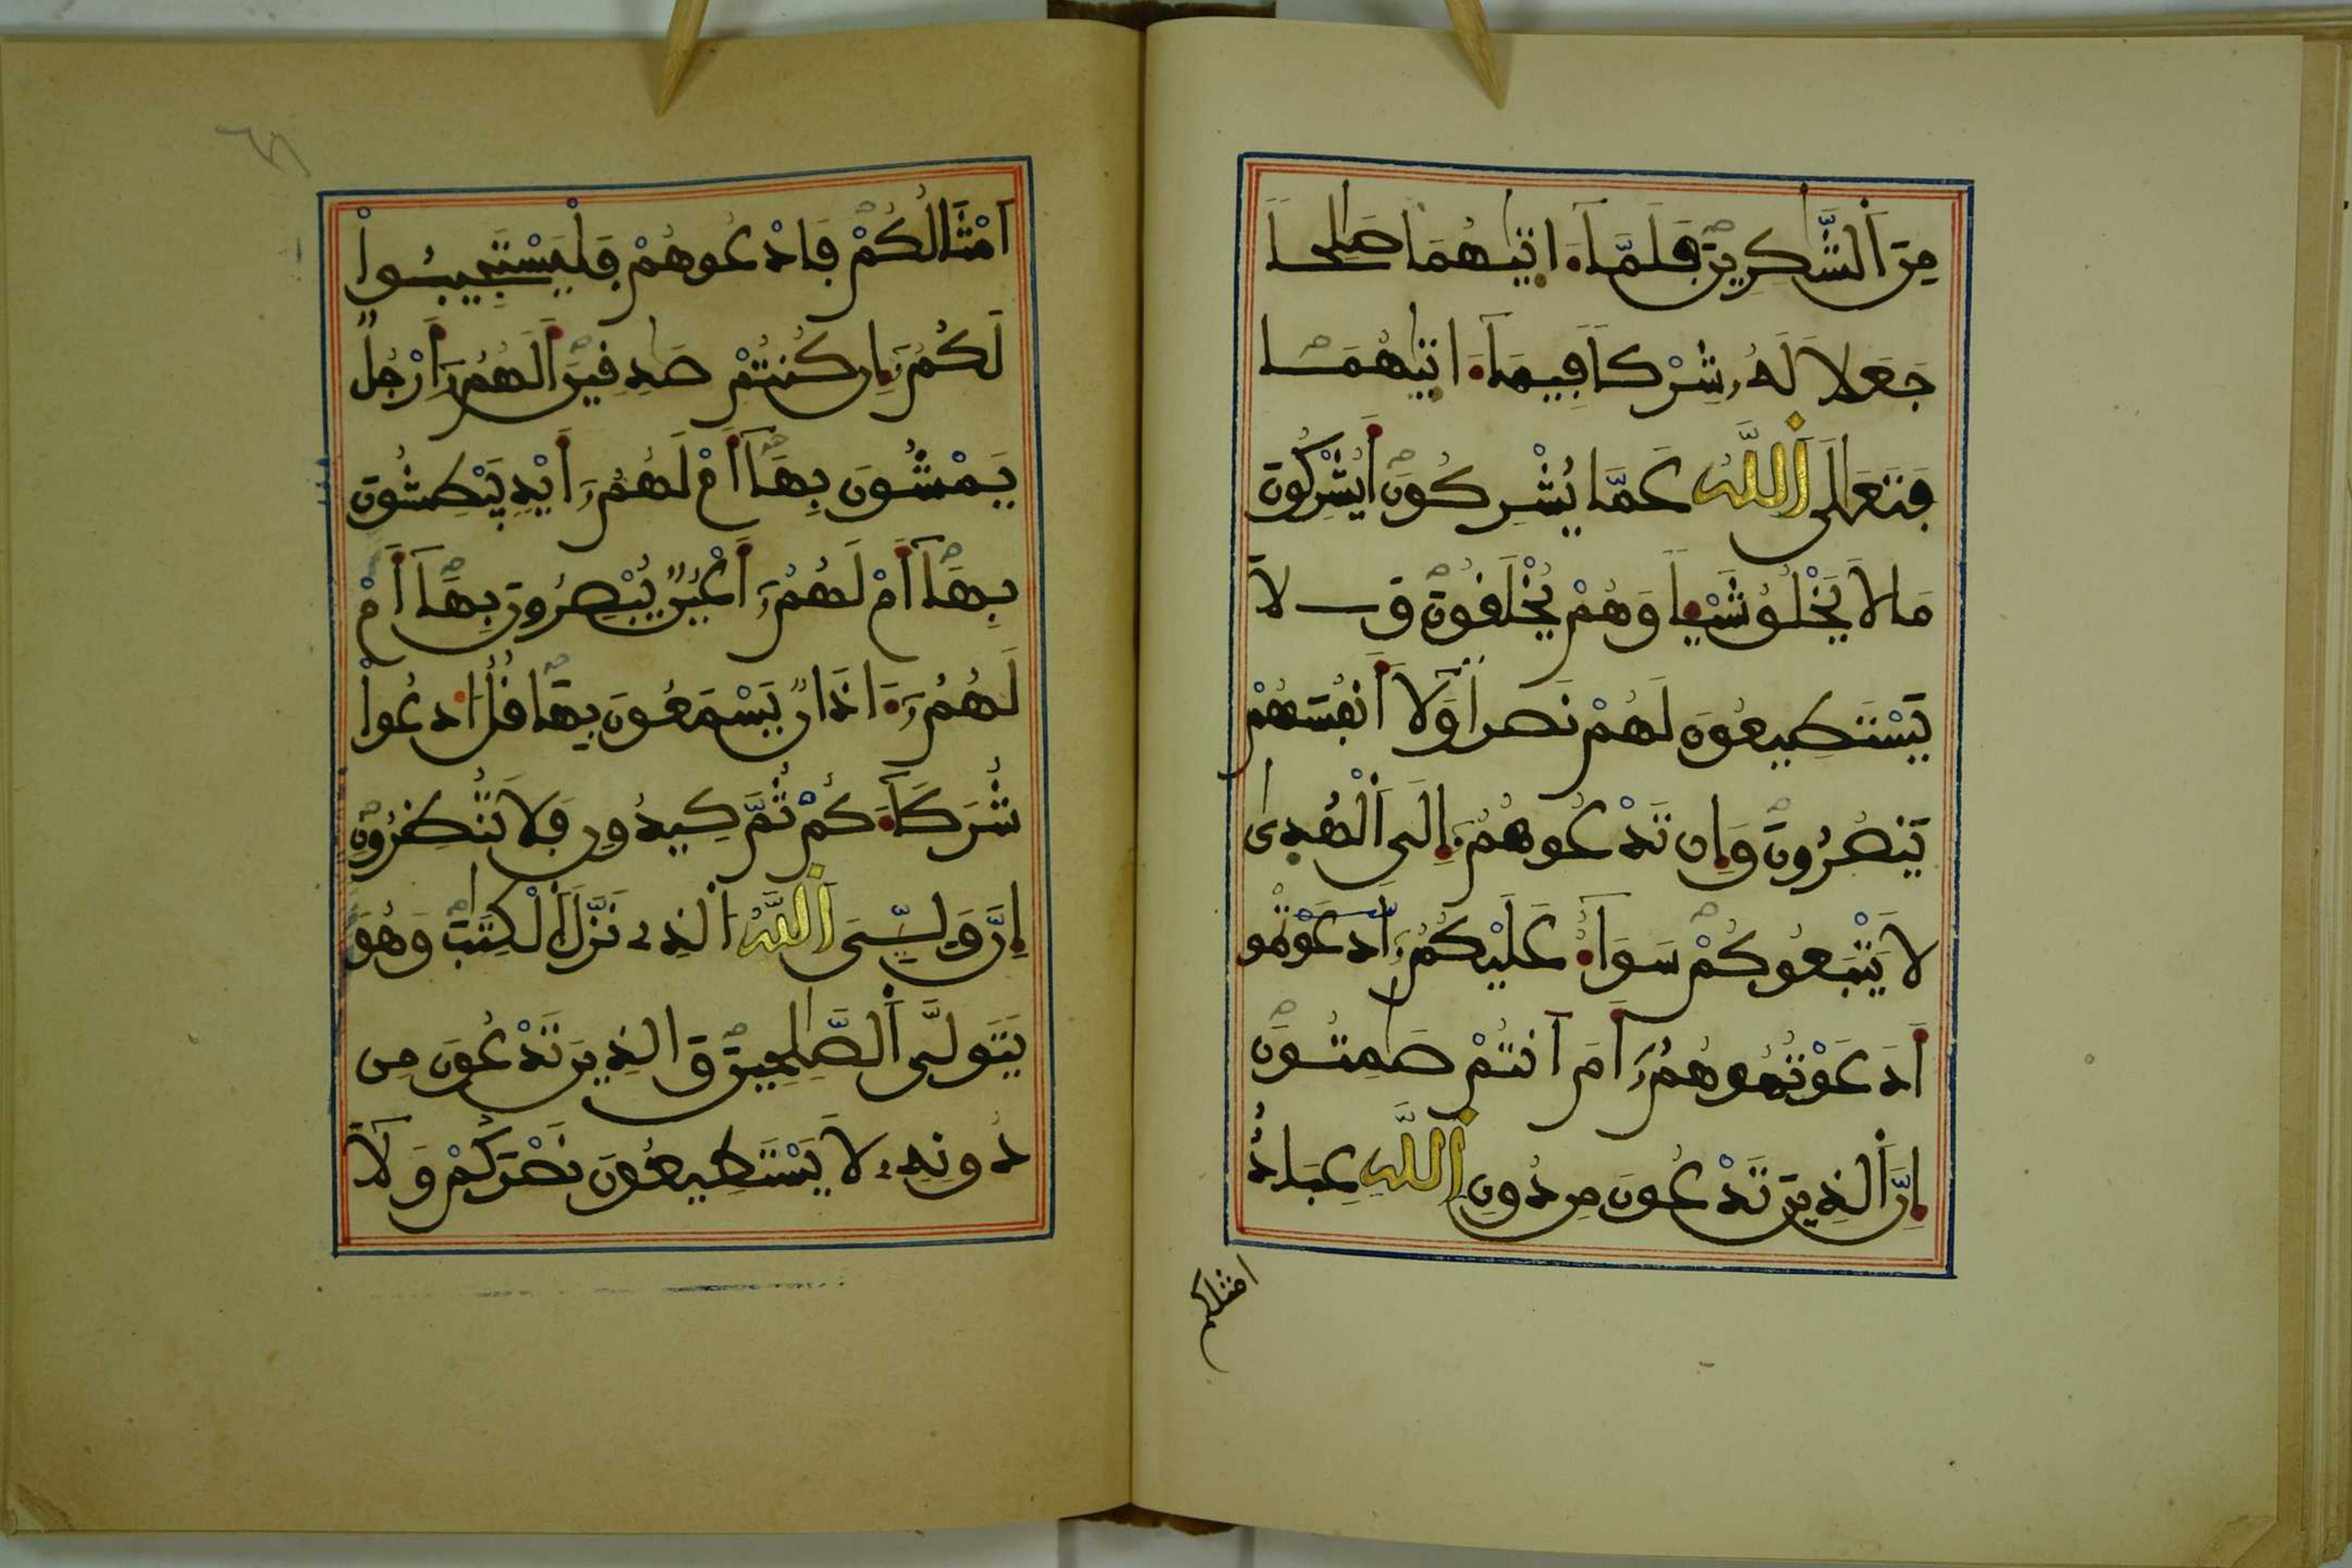 مِنَ اَ۬لشَّٰكِرِينَ فَلَمَّآ ءَاتٰىهُمَا صَٰلِحاٗ
جَعَلَا لَهُۥ شِرْكاٗ فِيمَآ ءَاتٰىهُمَا
فَتَعَٰلَى اَ۬للَّهُ عَمَّا يُشْرِكُونَ أَيُشْرِكُونَ
مَا لَا يَخْلُقُ شَيْـٔاٗ وَهُمْ يُخْلَقُونَ وَلَا
يَسْتَطِيعُونَ لَهُمْ نَصْراٗ وَلَآ أَنفُسَهُمْ
يَنصُرُونَ وَإِن تَدْعُوهُمُۥٓ إِلَى اَ۬لْهُدٜىٰ
لَا يَتْبَعُوكُمْ سَوَآءٌ عَلَيْكُمُۥٓ أَدَعَوْتُمُو
أَدَعَوْتُمُوهُمُۥٓ أَمَ اَنتُمْ صَٰمِتُونَ
إِنَّ اَ۬لذِينَ تَدْعُونَ مِن دُونِ اِ۬للَّهِ عِبَادٌ
امثالكم
اَمْثَالُكُمْ فَادْعُوهُمْ فَلْيَسْتَجِيبُواْ
لَكُمُۥٓ إِن كُنتُمْ صَٰدِقِينَ أَلَهُمُۥٓ أَرْجُلٞ
يَمْشُونَ بِهَآ أَمْ لَهُمُۥٓ أَيْدٖ يَبْطِشُونَ
بِهَآ أَمْ لَهُمُۥٓ أَعْيُنٞ يُبْصِرُونَ بِهَآ أَمْ
لَهُمُۥٓ ءَاذَانٞ يَسْمَعُونَ بِهَا قُلُ اُ۟دْعُواْ
شُرَكَآءَكُمْ ثُمَّ كِيدُونِ فَلَا تُنظِرُونِ
إِنَّ وَلِـِّۧيَ اَ۬للَّهُ اُ۬لذِے نَزَّلَ اَ۬لْكِتَٰبَ وَهُوَ
يَتَوَلَّى اَ۬لصَّٰلِحِينَ وَالذِينَ تَدْعُونَ مِن
دُونِهِۦ لَا يَسْتَطِيعُونَ نَصْرَكُمْ وَلَآ